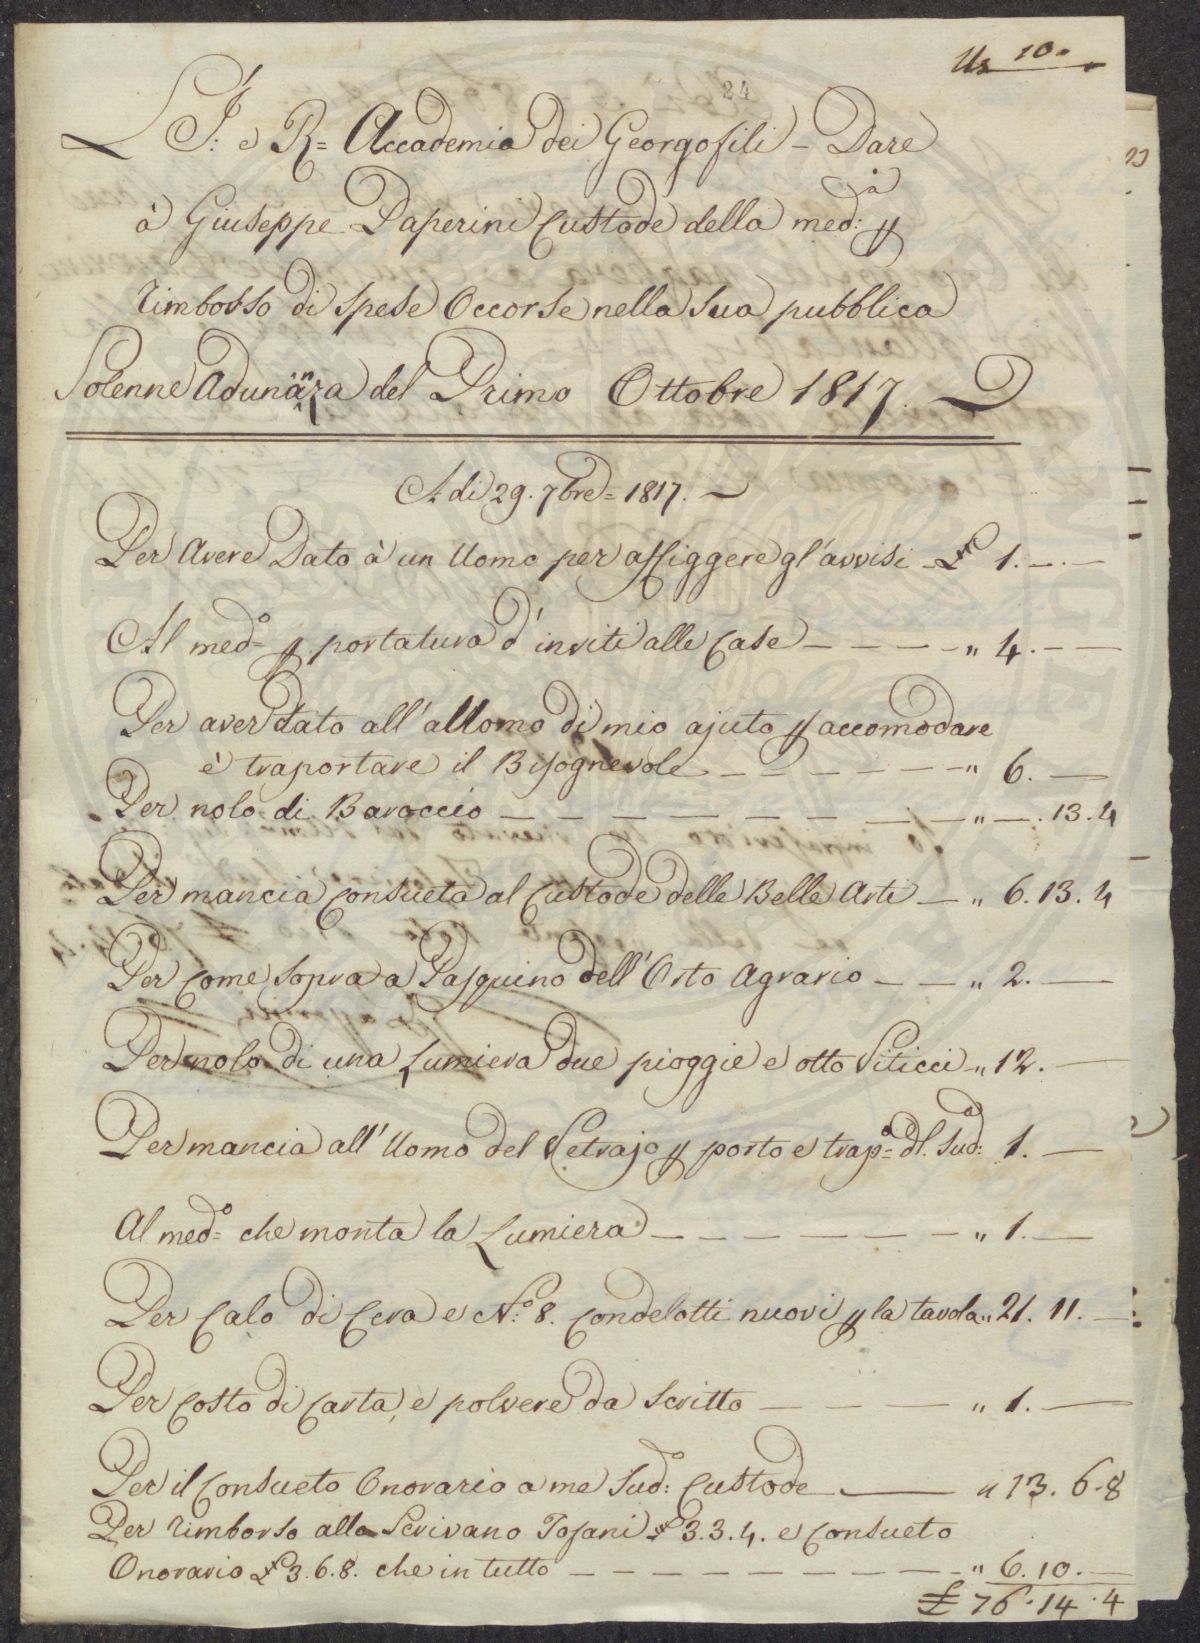 N.º 10.
24
L'I. e R. Accademia dei Georgofili - Dare
à Giuseppe Paperini Custode della med:ª p
rimborso di spese Occorse nella sua pubblica
Solenne Adunanza del Primo Ottobre 1817.
A di 29. 7bre= 1817.
Per Avere Dato à un Uomo per affiggere gl'avvisi £ 1. — —
Al med:º p portatura d'inviti alle Case — — — — " 4. — —
Per aver dato all'allomo di mio ajuto p accomodare
è traportare il Bisognevole — — — — — " 6. —
Per nolo di Baroccio — — — — — — — " — . 13. 4
Per mancia Consueta al Custode delle Belle Arti — " 6. 13. 4
Per Come Sopra a Pasquino dell'Orto Agrario — — " 2. —
Per nolo di una Lumiera due pioggie e otto Viticci " 12. —
Per mancia all'Uomo del Vetrajo p porto e trapº dl. Sudº: 1. —
Al med:º che monta la Lumiera — — — — — — — " 1. —
Per Calo di Cera e N.º 8. Condelotti nuovi p la tavola " 21. 11. —
Per Costo di Carta, e polvere da Scritto — — — " 1. —
Per il Consueto Onorario a me Sudº: Custode — " 13. 6. 8
Per rimborso allo Scrivano Tofani £ 3. 3. 4. e Consueto
Onorario £ 3. 6. 8. che in tutto — — — — — — — — " 6. 10. —
£ 76. 14. 4